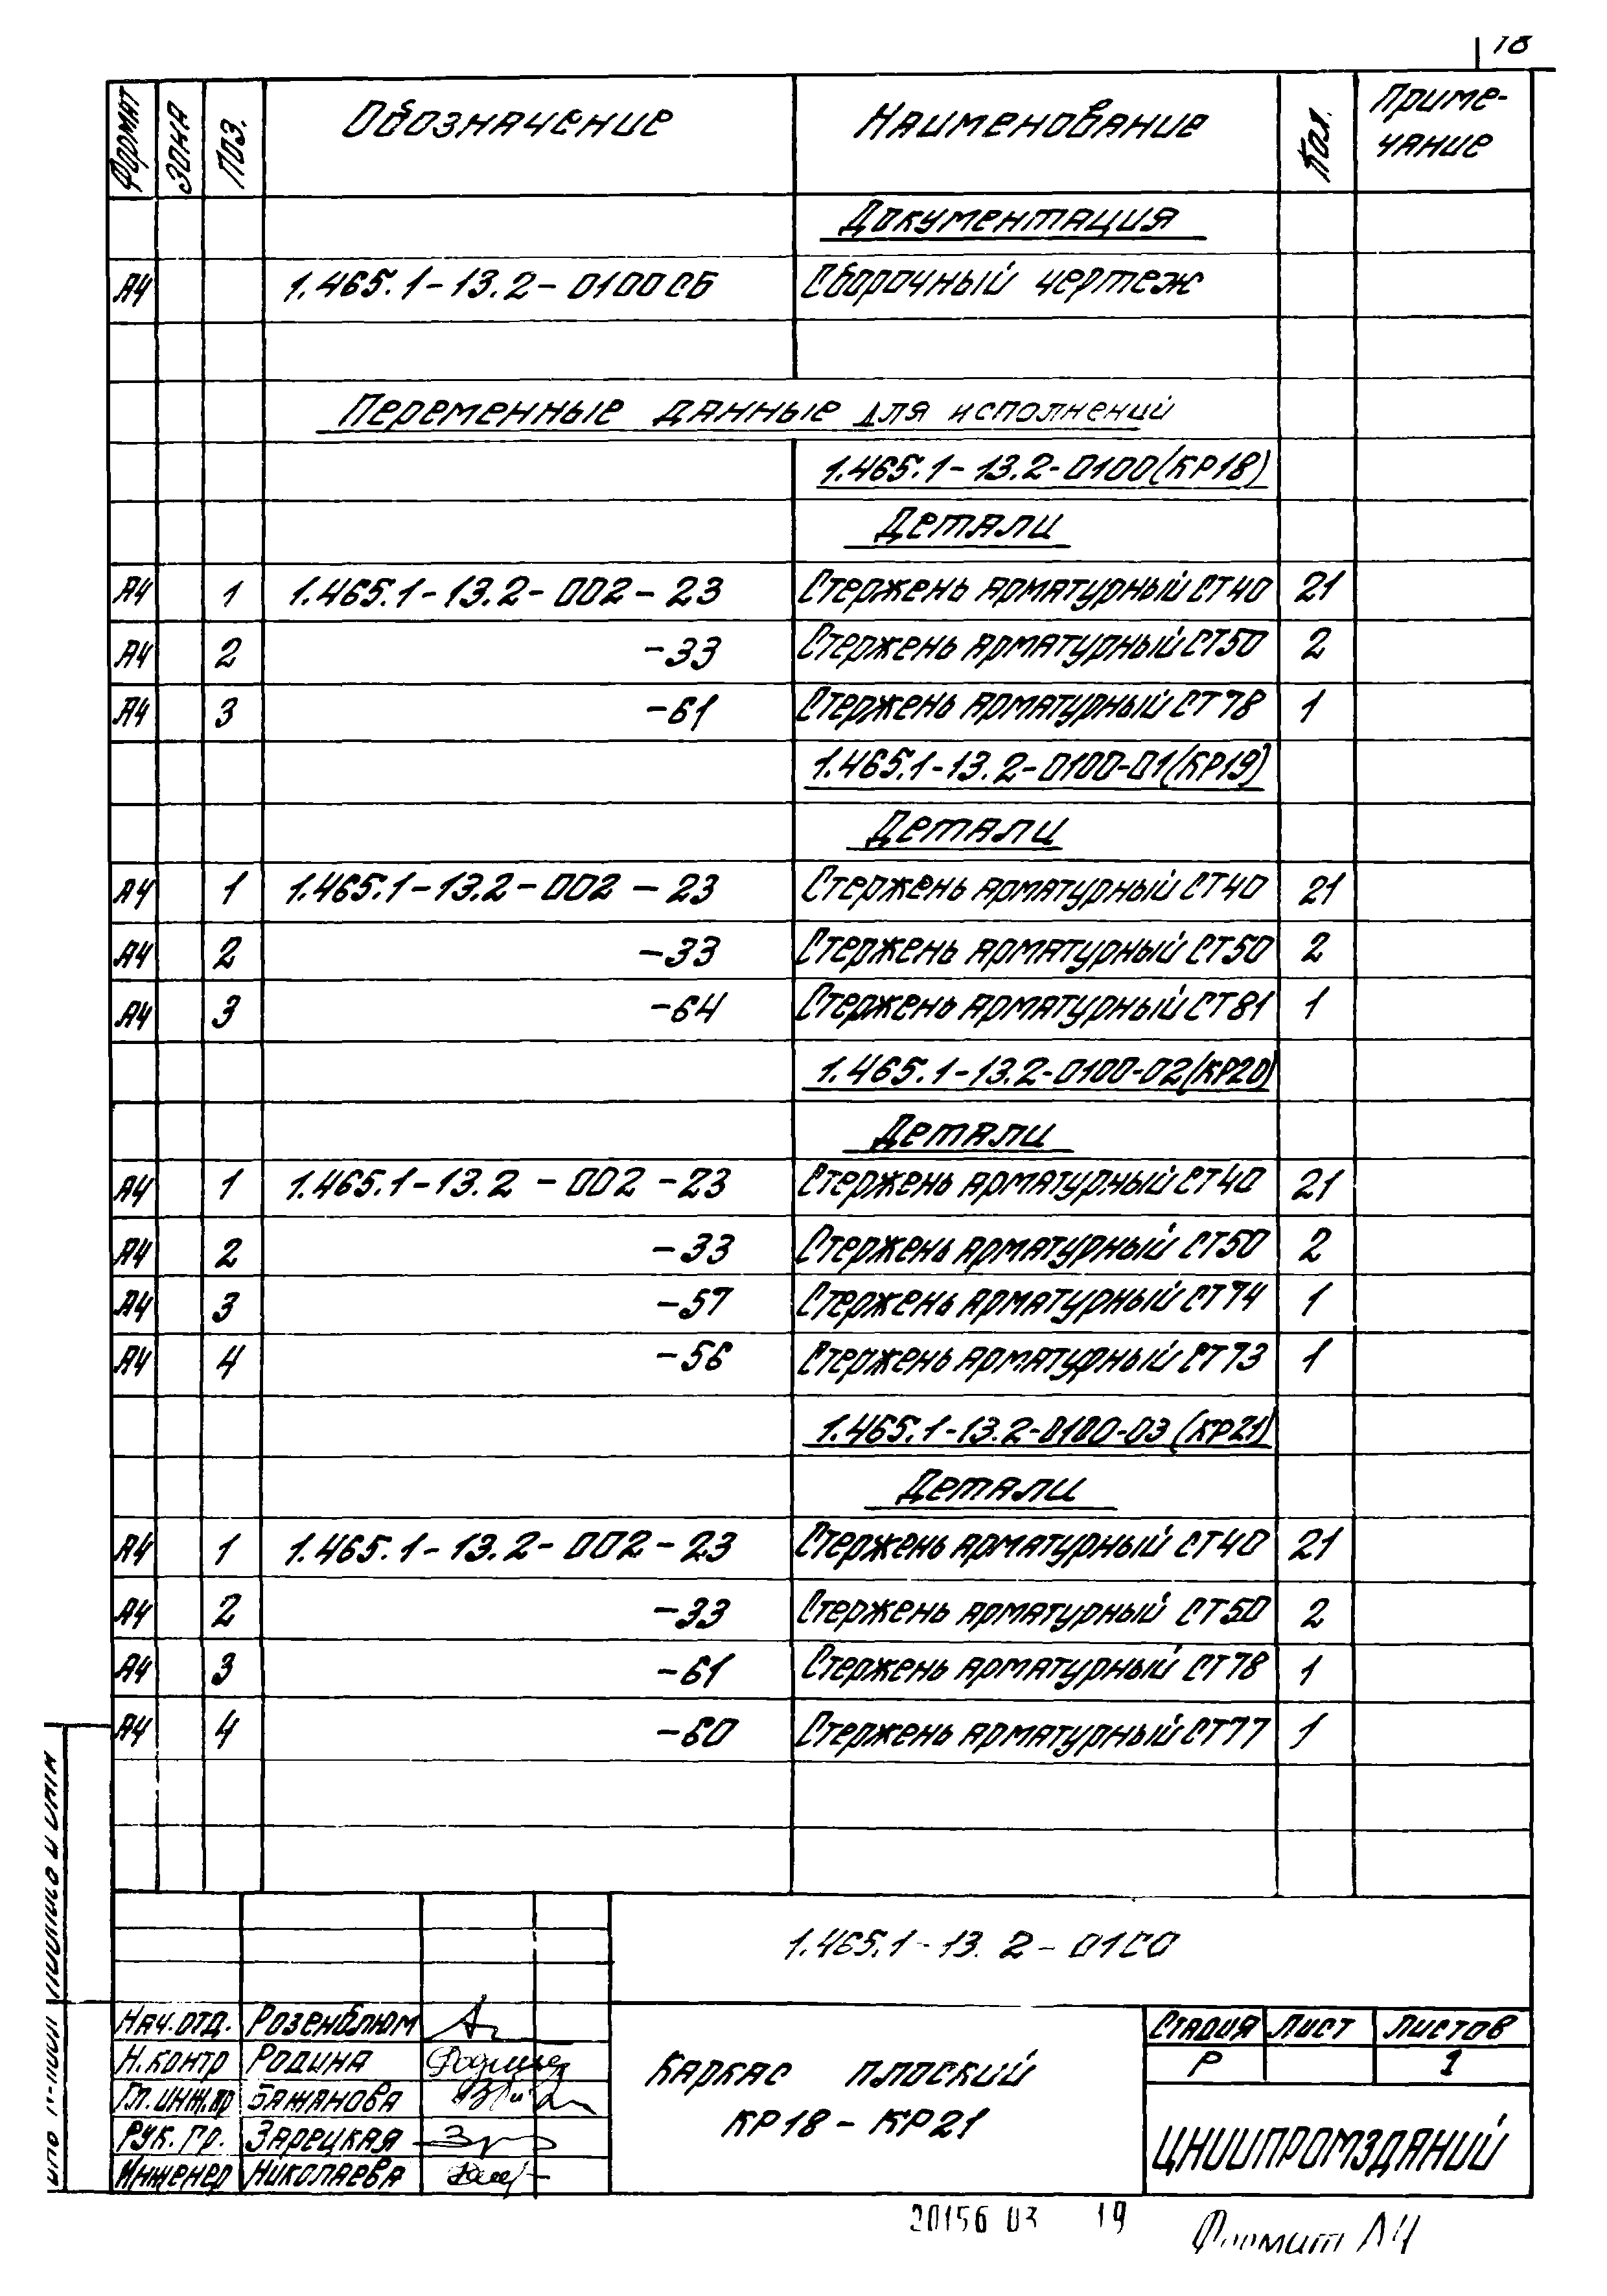 18
Формат Зона Поз. Обозначение Наименование Кол. Приме-
чание
Документация
А4 1.465.1-13.2-0100СБ Сборочный чертеж
Переменные данные для исполнений
1.465.1-13.2-0100(КР18)
Детали
А4 1 1.465.1-13.2-002-23 Стержень арматурный СТ40 21
А4 2 -33 Стержень арматурный СТ50 2
А4 3 -61 Стержень арматурный СТ78 1
1.465.1-13.2-0100-01(КР19)
Детали
А4 1 1.465.1-13.2-002-23 Стержень арматурный СТ40 21
А4 2 -33 Стержень арматурный СТ50 2
А4 3 -64 Стержень арматурный СТ81 1
1.465.1-13.2-0100-02(КР20)
Детали
А4 1 1.465.1-13.2-002-23 Стержень арматурный СТ40 21
А4 2 -33 Стержень арматурный СТ50 2
А4 3 -57 Стержень арматурный СТ74 1
А4 4 -56 Стержень арматурный СТ73 1
1.465.1-13.2-0100-03(КР21)
Детали
А4 1 1.465.1-13.2-002-23 Стержень арматурный СТ40 21
А4 2 -33 Стержень арматурный СТ50 2
А4 3 -61 Стержень арматурный СТ78 1
А4 4 -60 Стержень арматурный СТ77 1
1.465.1-13.2-0100
Нач.отд. Розенблюм
Н.контр Родина
Гл.инж.пр Бажанова
Рук.гр. Зарецкая
Инженер Николаева
Каркас плоский
КР18-КР21
Стадия Лист Листов
Р 1
ЦНИИПРОМЗДАНИЙ
20156 03 19
Формат А4